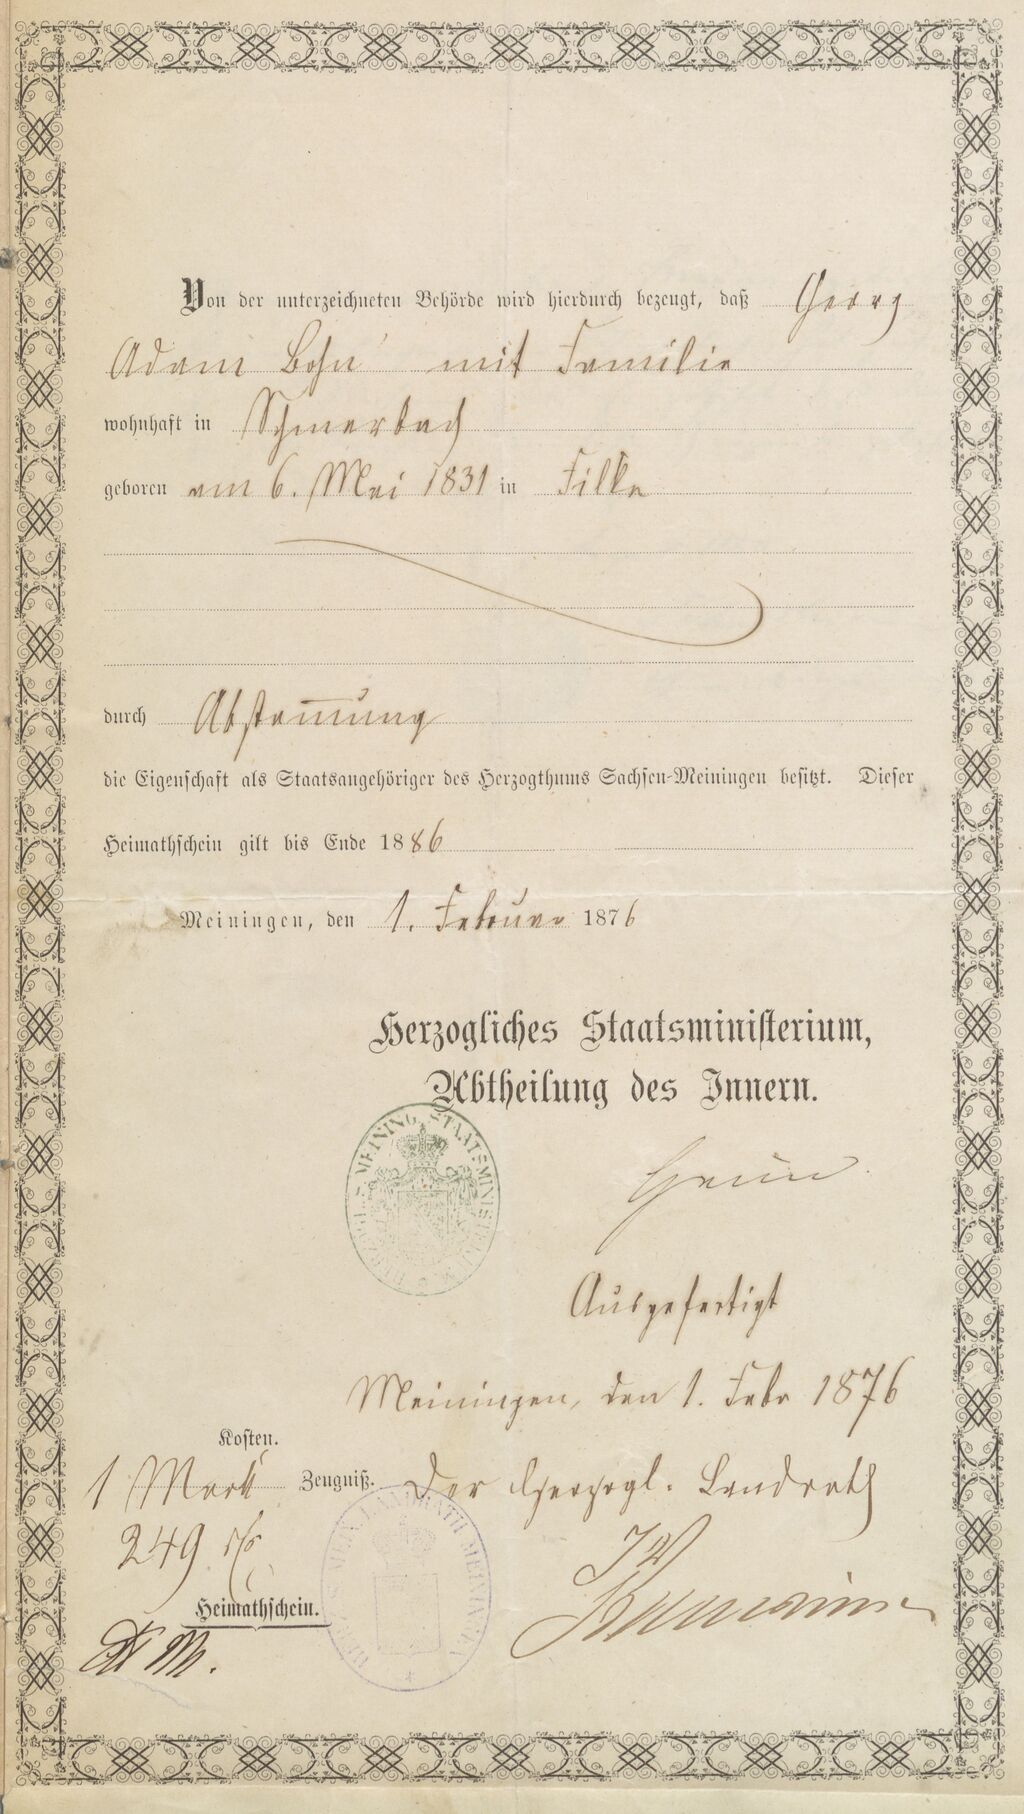 Von der unterzeichneten Behörde wird hierdurch bezeugt, daß Georg
Adam Bohn mit Familie
wohnhaft in Schmerbach
geboren am 6. Mai 1831 in Filke
durch Abstam̅ung
die Eigenschaft als Staatsangehöriger des Herzogthums Sachsen-Meiningen besitzt. Dieser
Heimathschein gilt bis Ende 1886
Meiningen, den 1. Februar 1876
Herzogliches Staatsministerium,
Abtheilung des Innern.
MEINING. STAATSMINIST
Ausgefertigt
Meiningen, den 1. Febr 1876
Kosten.
1 Mark Zeugniß. Der Herzogl. Landrath
249
LANDRATH MEININGEN
Heimathschein.